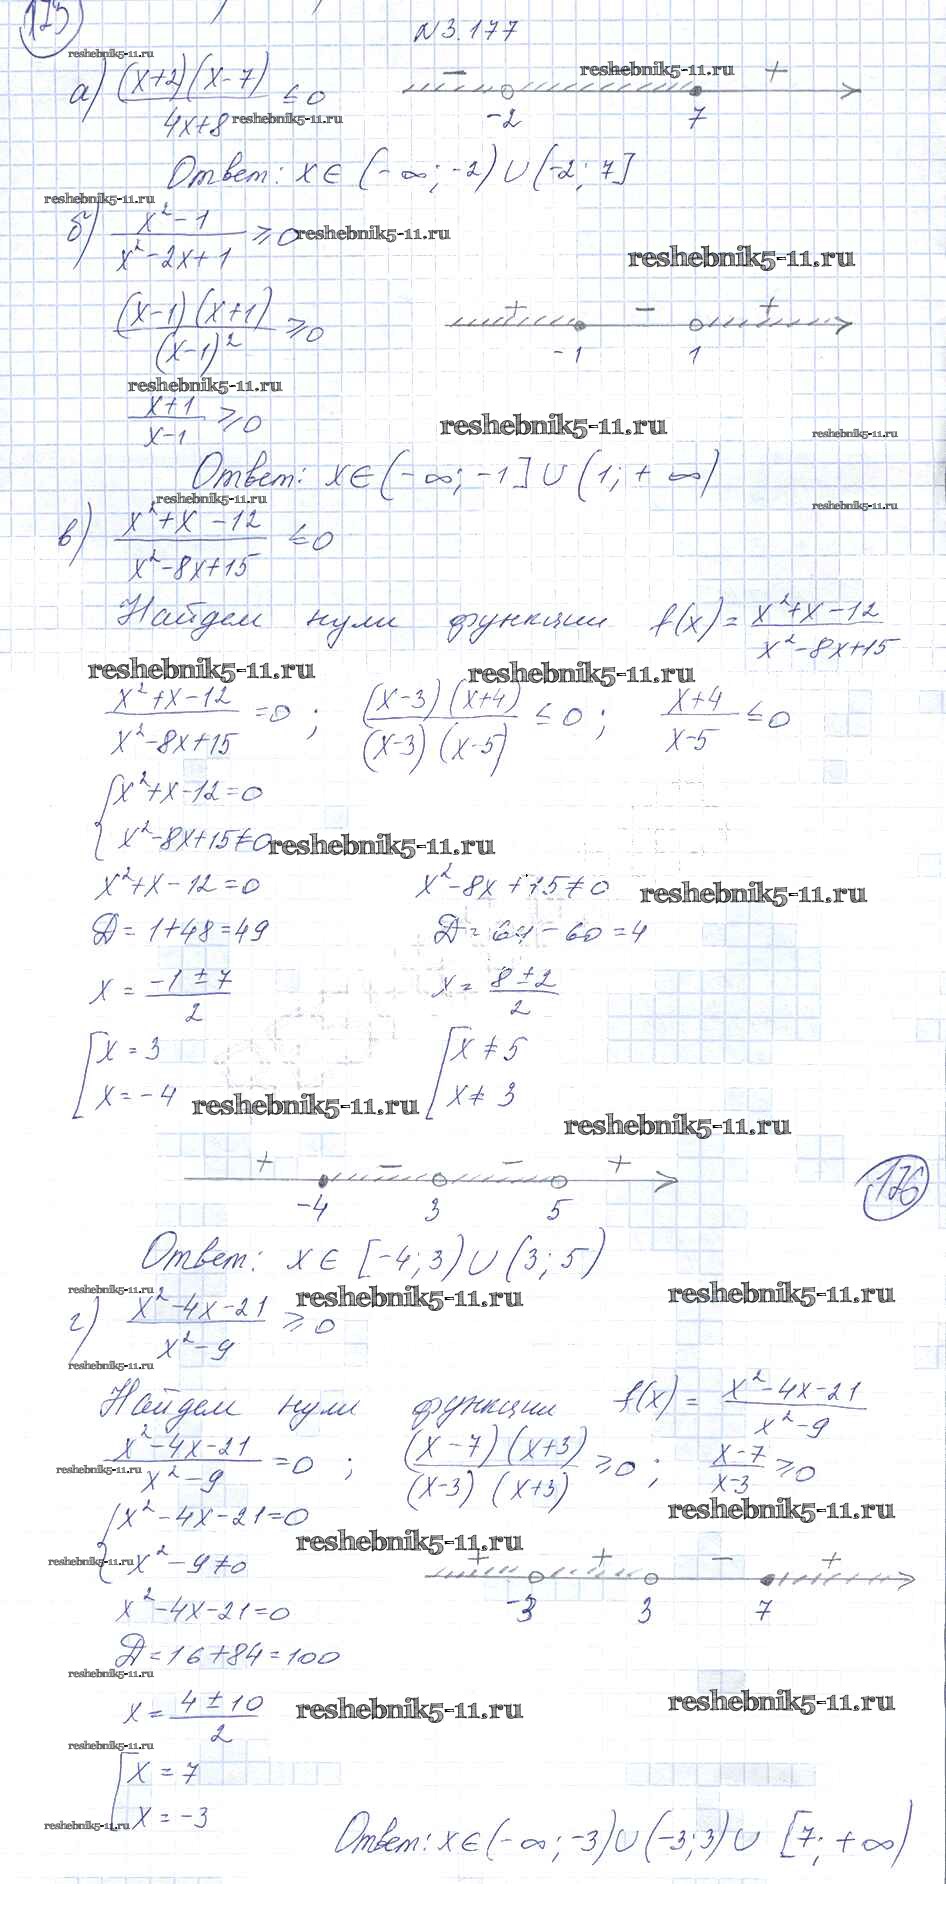 173
N 3.177
reshebnik5-11.ru
а) (x+2)(x-7) / 4x+8 ≤ 0
reshebnik5-11.ru
- +
reshebnik5-11.ru
-2 7
Ответ: x ∈ (-∞; -2) ∪ (-2; 7]
reshebnik5-11.ru
б) x²-1 / x²-2x+1 ≥ 0
reshebnik5-11.ru
reshebnik5-11.ru
(x-1)(x+1) / (x-1)² ≥ 0
+ - +
-1 1
reshebnik5-11.ru
x+1 / x-1 ≥ 0
reshebnik5-11.ru
reshebnik5-11.ru
Ответ: x ∈ (-∞; -1] ∪ (1; +∞)
reshebnik5-11.ru
reshebnik5-11.ru
в) x²+x-12 / x²-8x+15 ≤ 0
Найдем нули функции f(x) = x²+x-12 / x²-8x+15
reshebnik5-11.ru
reshebnik5-11.ru
x²+x-12 / x²-8x+15 = 0 ; (x-3)(x+4) / (x-3)(x-5) ≤ 0 ; x+4 / x-5 ≤ 0
x²+x-12=0
x²-8x+15≠0
reshebnik5-11.ru
x²+x-12=0 x²-8x+15≠0
reshebnik5-11.ru
Д=1+48=49 Д=64-60=4
x = -1±7 / 2 x = 8±2 / 2
x = 3 x ≠ 5
x = -4 x ≠ 3
reshebnik5-11.ru
reshebnik5-11.ru
+ - - +
-4 3 5
176
Ответ: x ∈ [-4; 3) ∪ (3; 5)
reshebnik5-11.ru
reshebnik5-11.ru
reshebnik5-11.ru
г) x²-4x-21 / x²-9 ≥ 0
reshebnik5-11.ru
Найдем нули функции f(x) = x²-4x-21 / x²-9
x²-4x-21 / x²-9 = 0 ; (x-7)(x+3) / (x-3)(x+3) ≥ 0 ; x-7 / x-3 ≥ 0
reshebnik5-11.ru
reshebnik5-11.ru
x²-4x-21=0
reshebnik5-11.ru
x²-9≠0
reshebnik5-11.ru
+ + - +
-3 3 7
x²-4x-21=0
Д=16+84=100
reshebnik5-11.ru
x = 4±10 / 2
reshebnik5-11.ru
reshebnik5-11.ru
reshebnik5-11.ru
x = 7
x = -3
reshebnik5-11.ru
Ответ: x ∈ (-∞; -3) ∪ (-3; 3) ∪ [7; +∞)